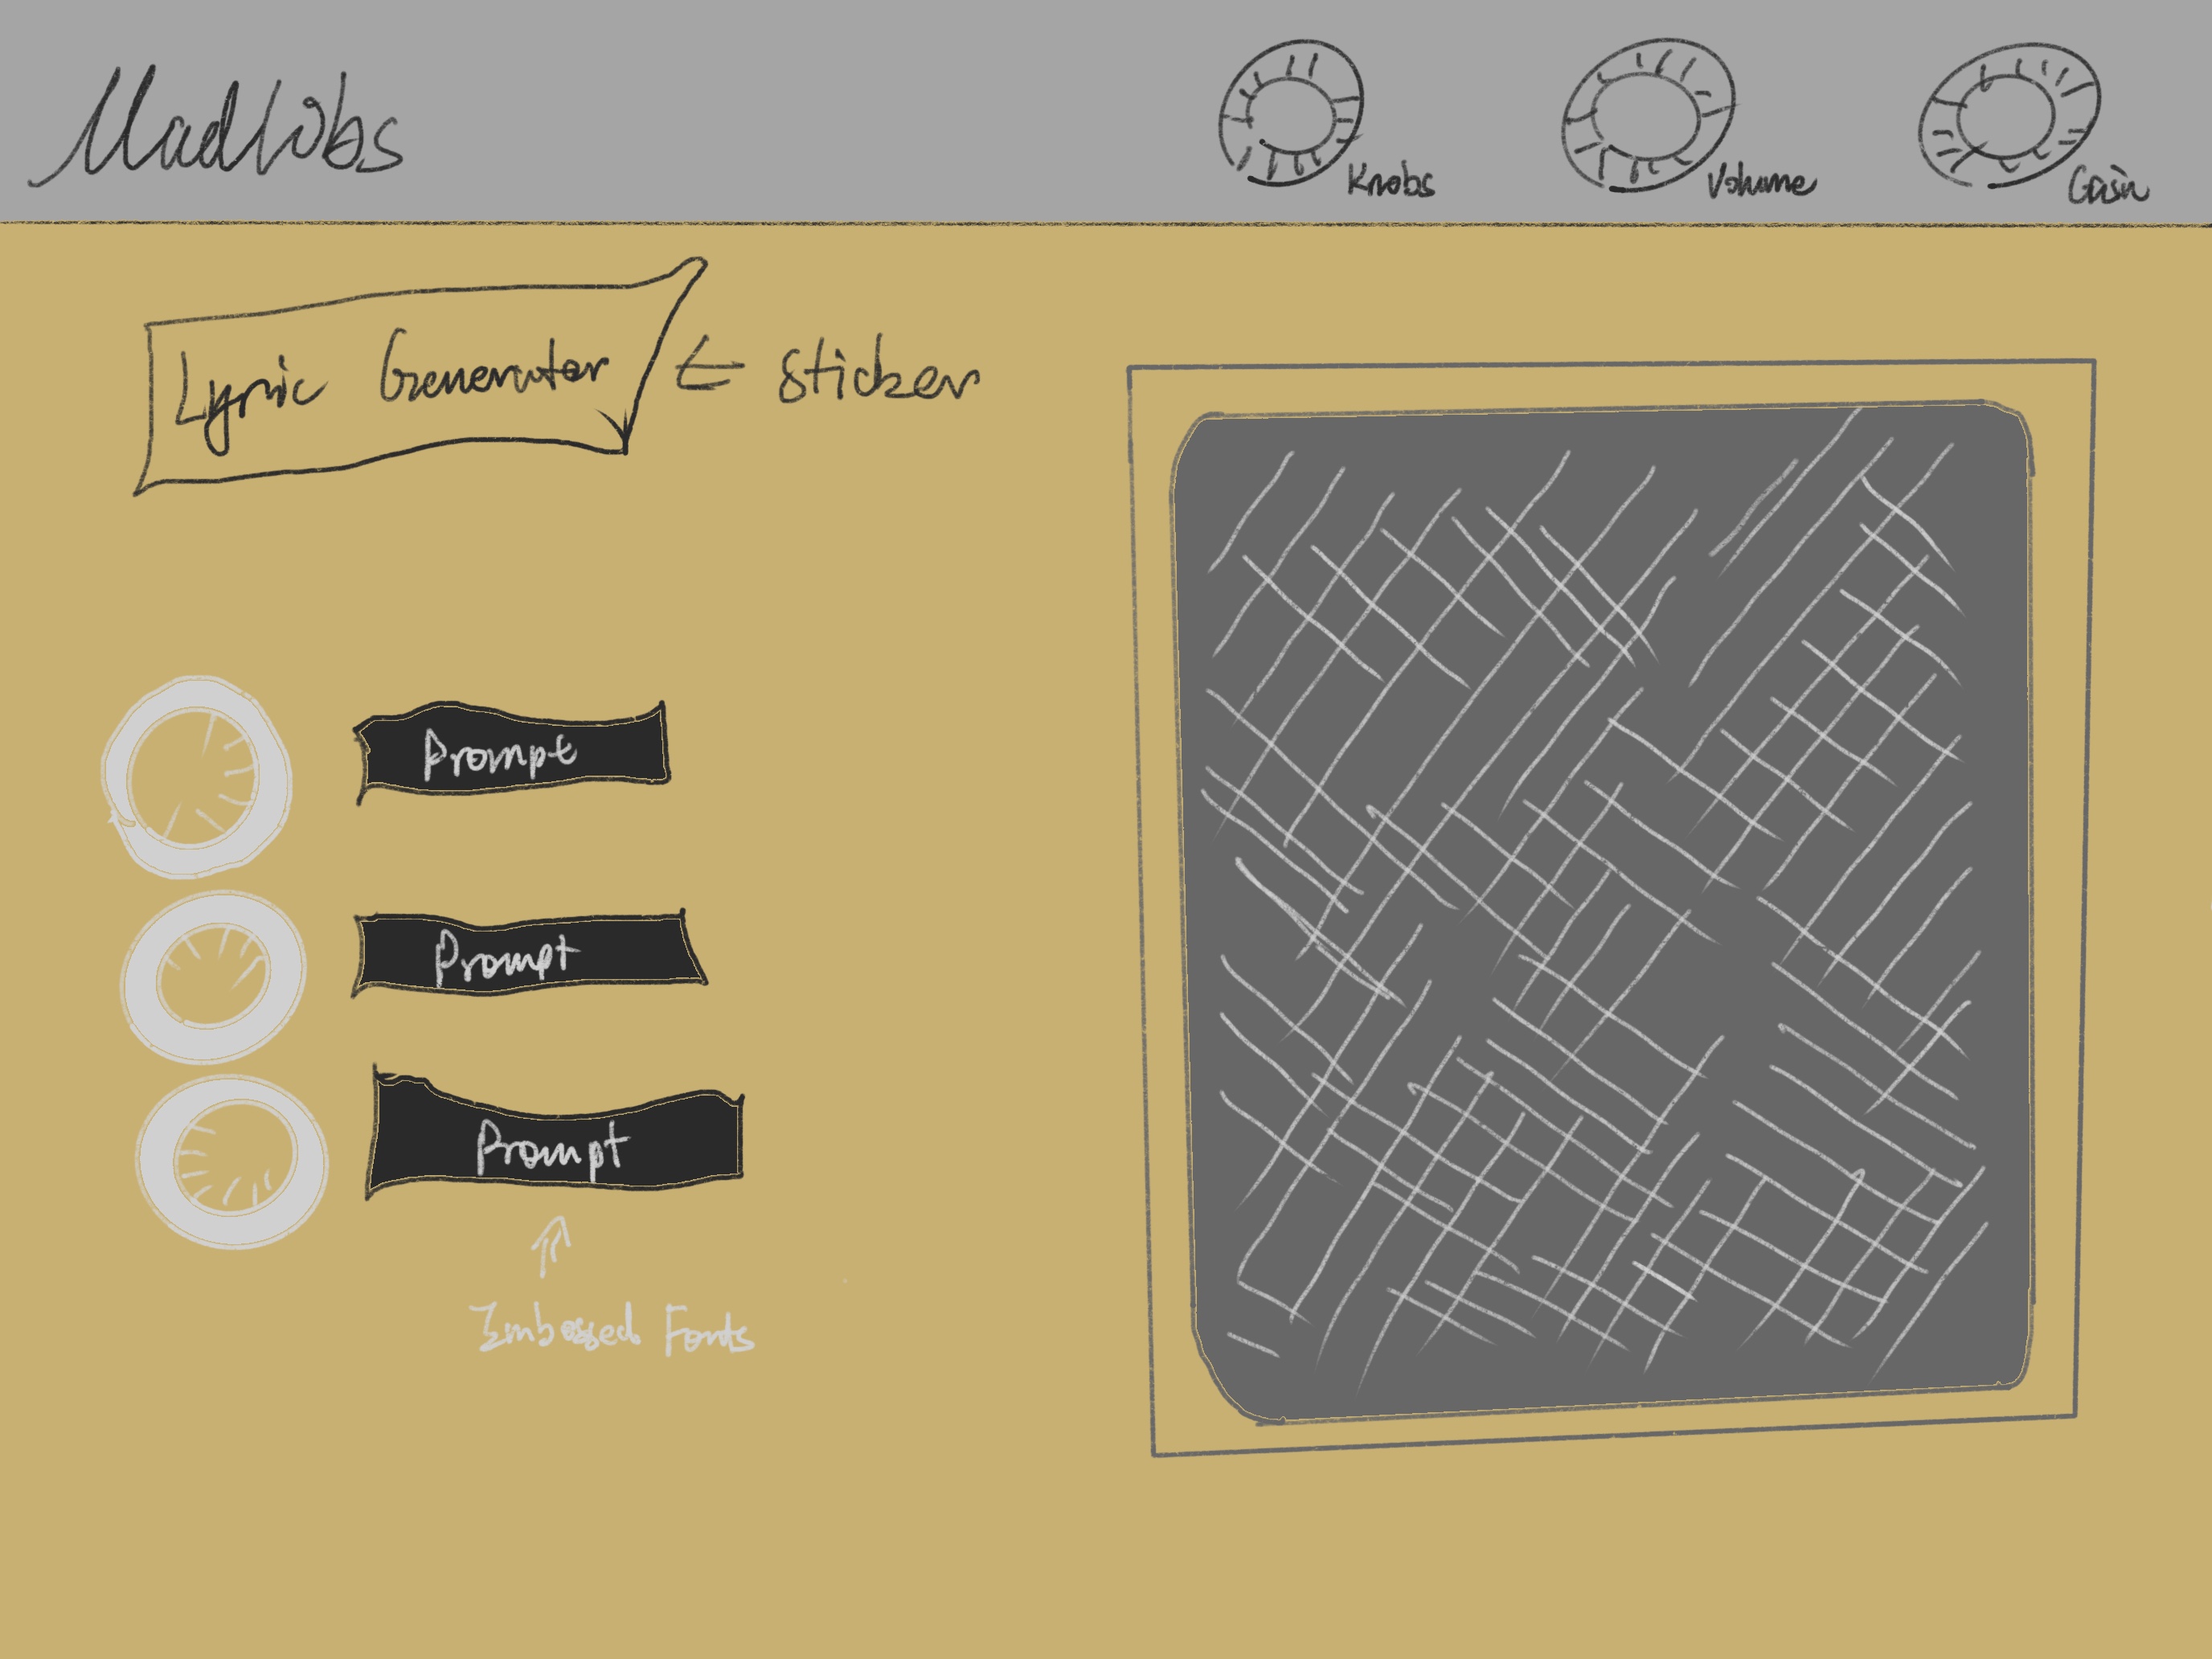 Madlibs
Knobs
Volume
Gain
Lyric Generator ← Sticker
Prompt
Prompt
Prompt
Embossed Fonts